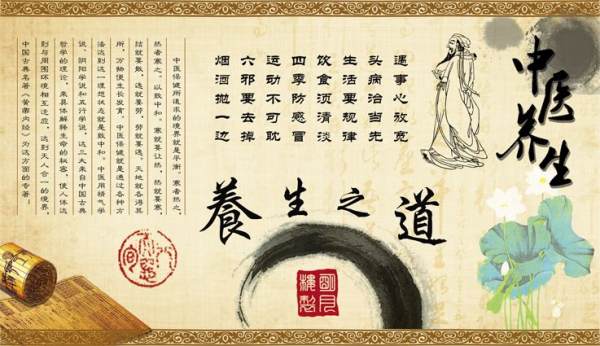 中医养生
遇事心放宽
头病治当先
生活要规律
饮食须清淡
四季防感冒
运动不可耽
六邪要去掉
烟酒抛一边
養生之道
中医保健所追求的境界就是平衡。寒者热之，
热者寒之，以致中和。寒就要让热，热就要寒，
结就要散，逸就要劳，劳就要逸。天地就各得其
所，万物便生长发育。中医保健就是通过各种方
法达到这一理想状态就是致中和。中医用精气学
说、阴阳学说和五行学说，这三大来自中国古典
哲学的理论，来具体解释生命的秘密，使人体达
到与周围环境相互适应，达到天人合一的境界，
中国古典名著《黄帝内经》为这方面的专著。